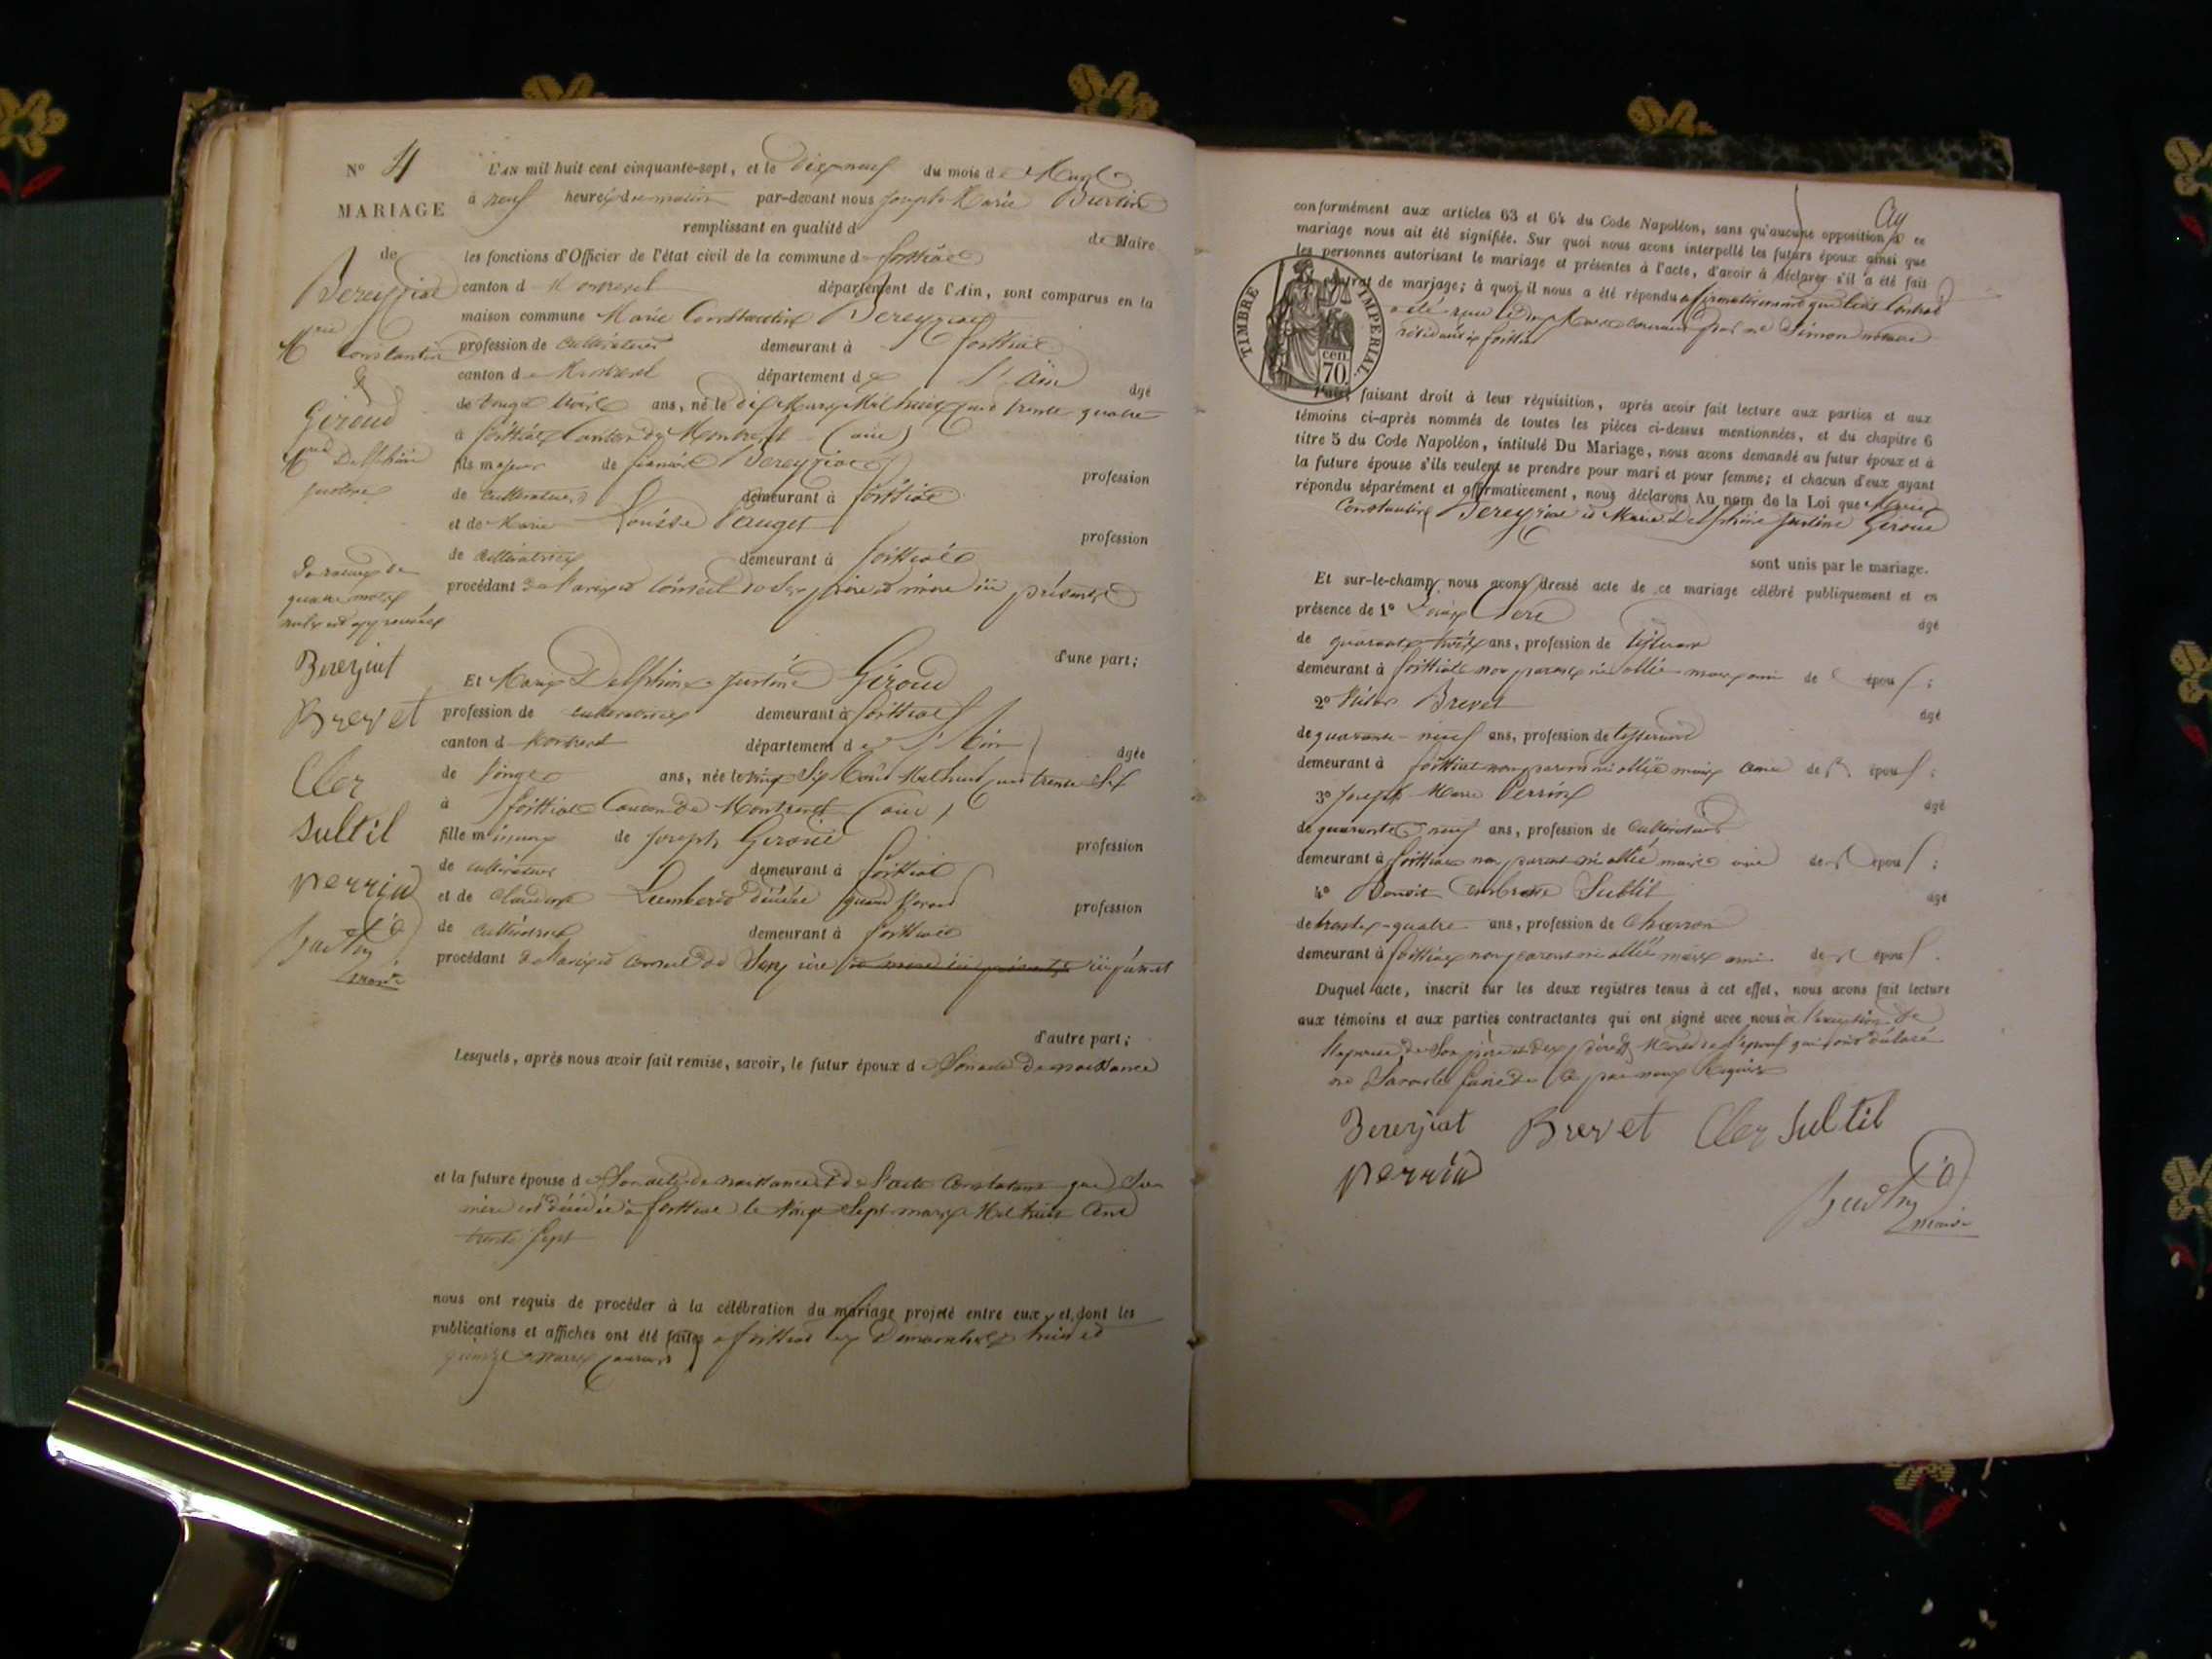 N° 4
MARIAGE
de
Bereyziat
Mrie Constantin
&
Giroud
Mrie Delphine
Justine
quatre mots
Bereziat
Brevet
Cler
Subtil
Perrin
maire
L'AN mil huit cent cinquante-sept, et le dix neuf du mois de Mars
à neuf heures du matin par-devant nous Joseph Marie Burtin
remplissant en qualité d
de Maire
les fonctions d'Officier de l'état civil de la commune d foissiat
canton d Montrevel département de l'Ain, sont comparus en la
maison commune Marie Constantin Bereyziat
profession de cultivateur demeurant à foissiat
canton de Montrevel département de l'Ain âgé
de vingt trois ans, né le dix Mars Mil huit cent trente quatre
à foissiat Canton de Montrevel (ain)
fils majeur de Bereyziat profession
de cultivateur demeurant à foissiat
et de Marie Louise Pauget profession
de cultivatrice demeurant à foissiat
procédant de l'avis et conseil de ses père et mère ici présents
d'une part;
Et Marie Delphine Justine Giroud
profession de cultivatrice demeurant à foissiat
canton d Montrevel département de l'Ain âgée
de vingt ans, née le vingt six Août Mil huit cent trente six
à foissiat Canton de Montrevel (ain)
fille mineure de Joseph Giroud profession
de cultivateur demeurant à foissiat
et de Claudine décédée quand vivant profession
de cultivatrice demeurant à foissiat
procédant de l'avis et conseil de Son père et mère ici présents ici présent
d'autre part;
Lesquels, après nous avoir fait remise, savoir, le futur époux de Son acte de naissance
et la future épouse de Son acte de naissance et de l'acte Constatant que Sa
mère est décédée à foissiat le vingt Sept mars Mil huit Cent
trente Sept
nous ont requis de procéder à la célébration du mariage projeté entre eux et dont les
publications et affiches ont été faites à foissiat les Dimanches huit et
quinze mars courant
conformément aux articles 63 et 64 du Code Napoléon, sans qu'aucune opposition à ce
mariage nous ait été signifiée. Sur quoi nous avons interpellé les futurs époux ainsi que
les personnes autorisant le mariage et présentes à l'acte, d'avoir à déclarer s'il a été fait
contrat de mariage; à quoi il nous a été répondu affirmativement que leur Contrat
a été reçu le courant par me Simon notaire
résidant à foissiat
TIMBRE IMPERIAL
70 cen
Puis, faisant droit à leur réquisition, après avoir fait lecture aux parties et aux
témoins ci-après nommés de toutes les pièces ci-dessus mentionnées, et du chapitre 6
titre 5 du Code Napoléon, intitulé Du Mariage, nous avons demandé au futur époux et à
la future épouse s'ils veulent se prendre pour mari et pour femme; et chacun d'eux ayant
répondu séparément et affirmativement, nous déclarons Au nom de la Loi que Marie
Constantin Bereyziat et Marie Delphine Justine Giroud
sont unis par le mariage.
Et sur-le-champ nous avons dressé acte de ce mariage célébré publiquement et en
présence de 1° Clerc âgé
de quarante trois ans, profession de tisserand
demeurant à foissiat non parent ni allié mais ami de l'époux;
2° Brevet âgé
de quarante-neuf ans, profession de tisserand
demeurant à foissiat non parent ni allié mais ami de l'époux;
3° Joseph Marie Perrin âgé
de quarante neuf ans, profession de cultivateur
demeurant à foissiat non parent ni allié mais ami de l'époux;
4° Benoit Ambroise Subtil âgé
de trente-quatre ans, profession de Charron
demeurant à foissiat non parent ni allié mais ami de l'époux.
Duquel acte, inscrit sur les deux registres tenus à cet effet, nous avons fait lecture
aux témoins et aux parties contractantes qui ont signé avec nous à l'exception de
l'épouse de Son père et des père & mère de l'époux qui ont déclaré
ne Savoir le faire de ce par nous Requis
Bereziat Brevet Cler Subtil
Perrin
maire